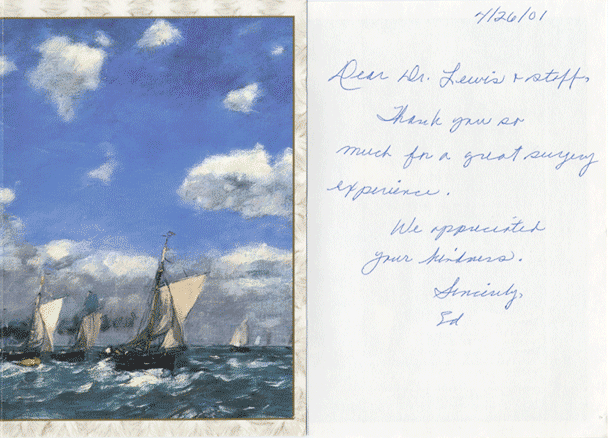 4/26/01
Dear Dr. Lewis + staff,
Thank you so
much for a great surgery
experience.
We appreciated
your kindness.
Sincerely,
Ed